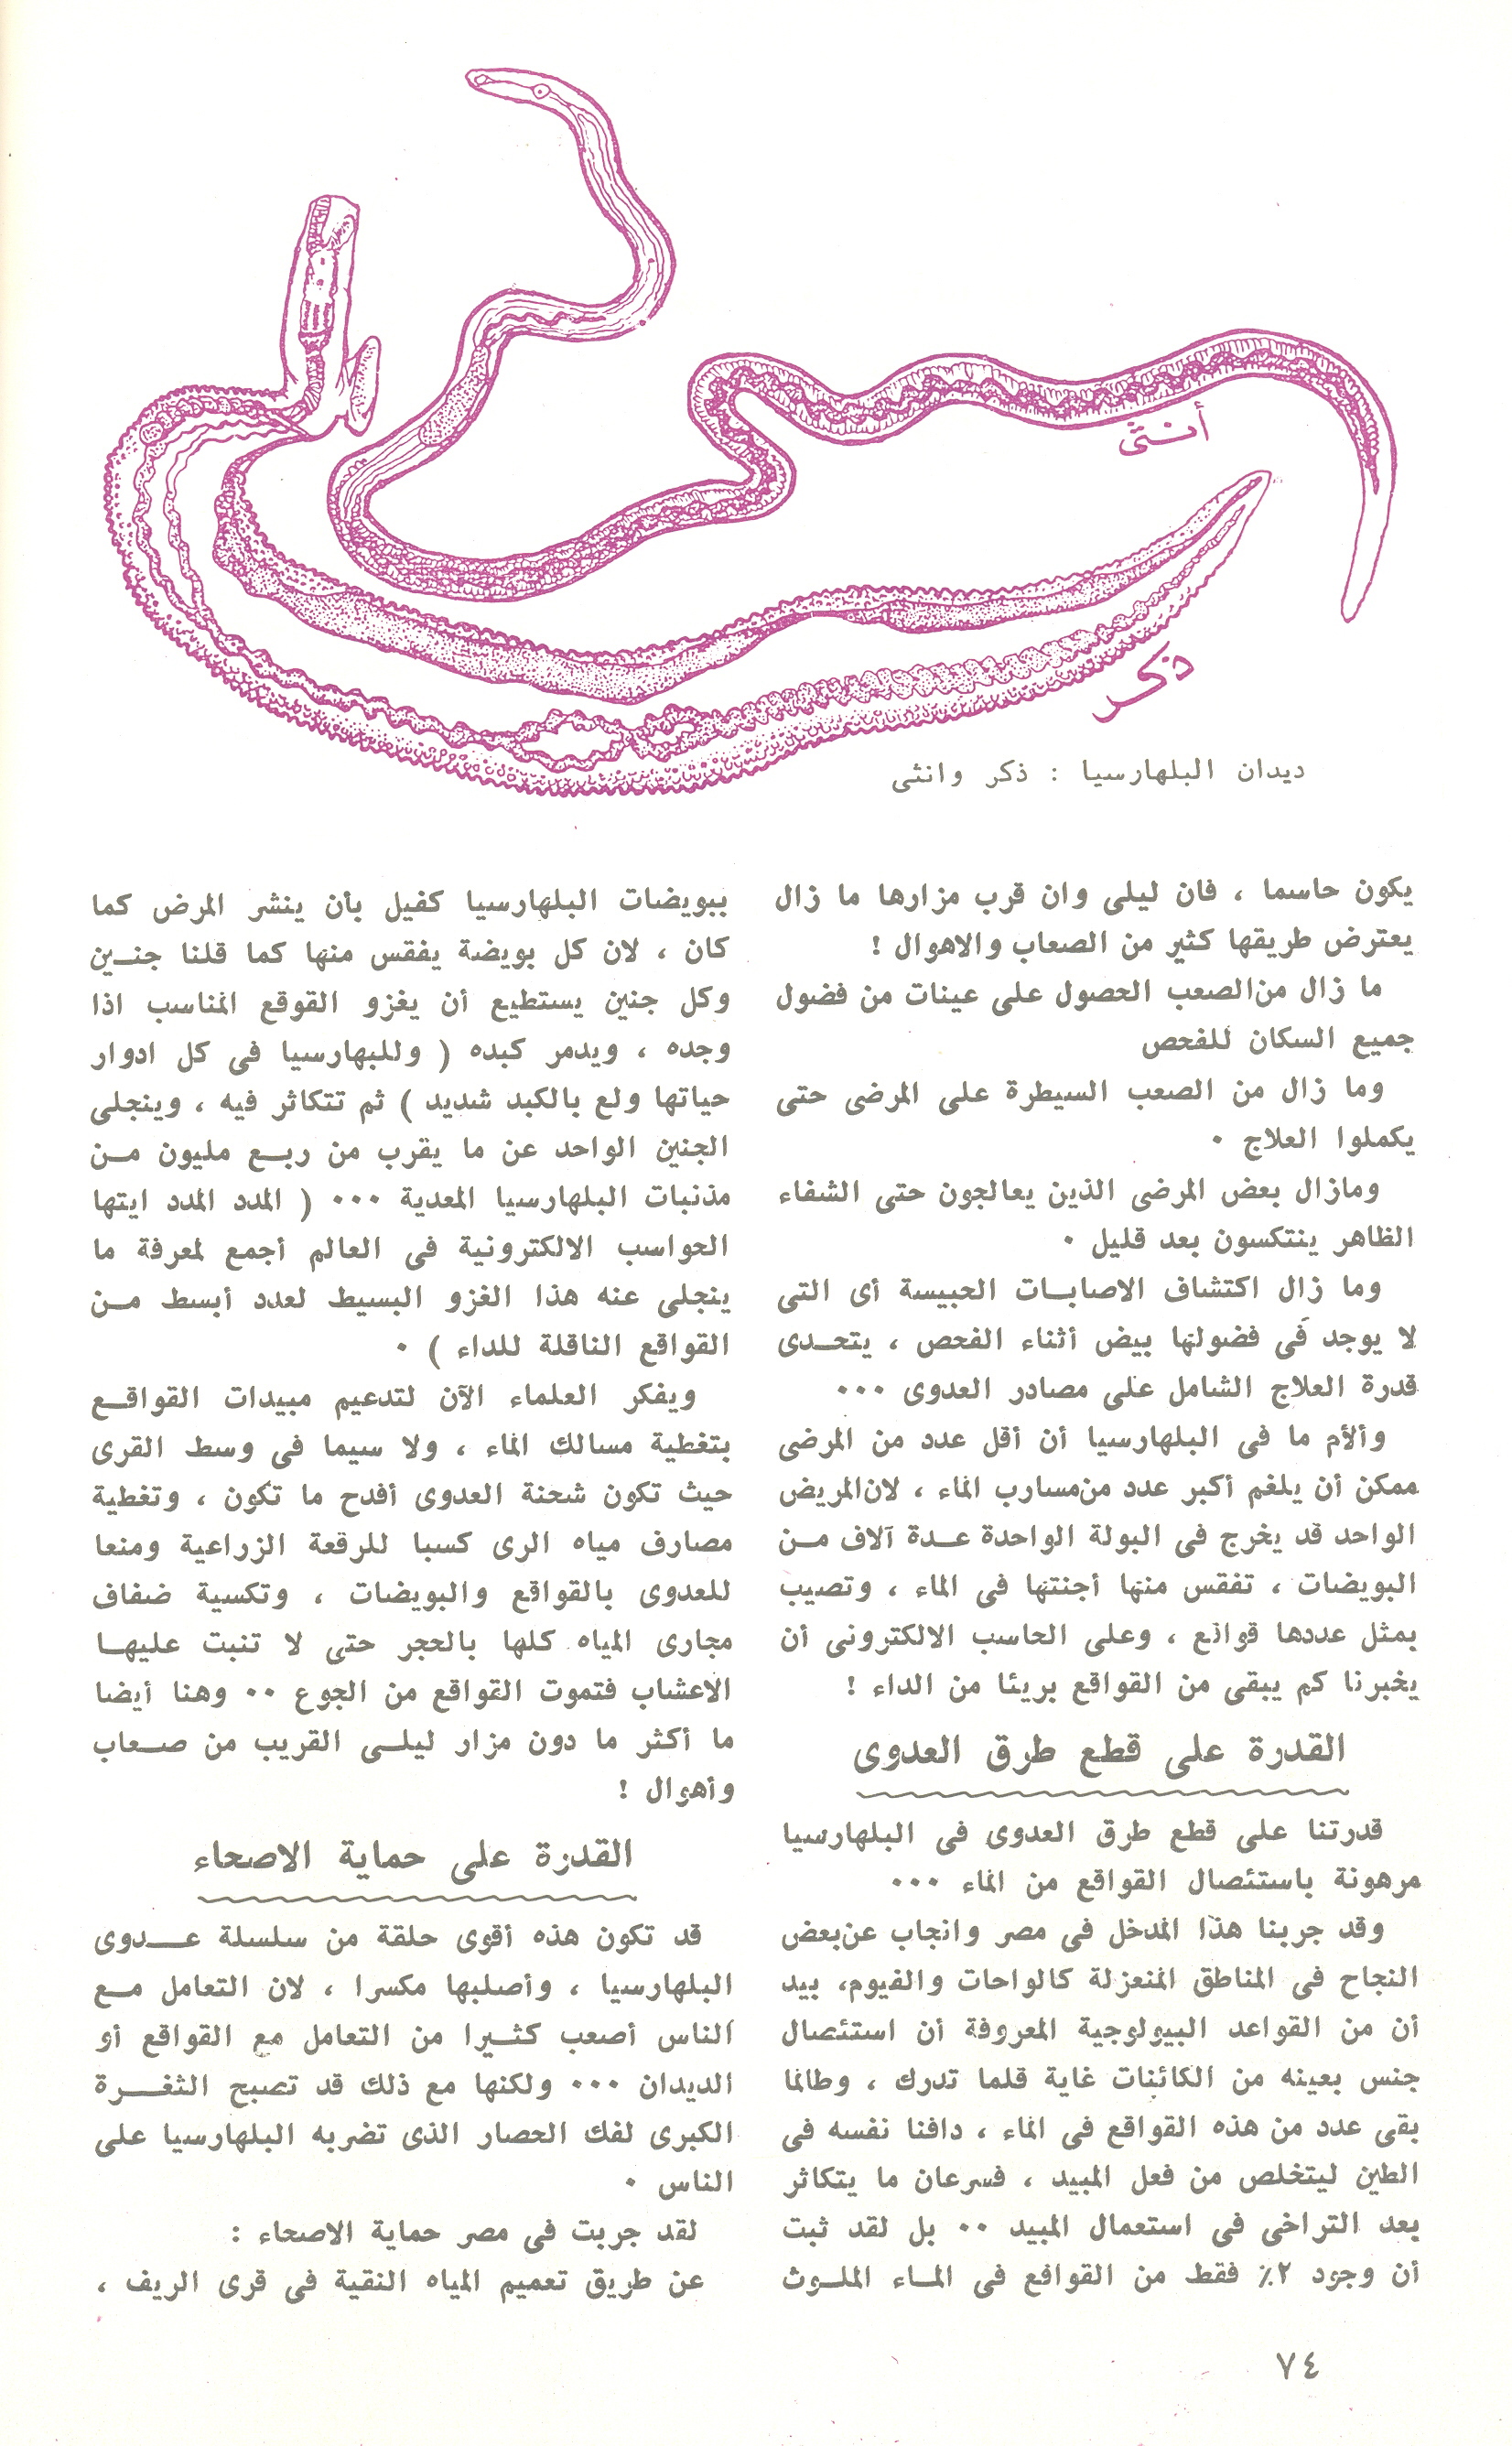 أنثى
ذكر
ديدان البلهارسيا : ذكر وانثى
يكون حاسما ، فان ليلى وان قرب مزارها ما زال
يعترض طريقها كثير من الصعاب والاهوال !
ما زال من الصعب الحصول على عينات من فضول
جميع السكان للفحص
وما زال من الصعب السيطرة على المرضى حتى
يكملوا العلاج ٠
ومازال بعض المرضى الذين يعالجون حتى الشفاء
الظاهر ينتكسون بعد قليل ٠
وما زال اكتشاف الاصابات الحبيسة أى التى
لا يوجد فى فضولها بيض أثناء الفحص ، يتحدى
قدرة العلاج الشامل على مصادر العدوى ٠٠٠
وألأم ما فى البلهارسيا أن أقل عدد من المرضى
ممكن أن يلغم أكبر عدد من مسارب الماء ، لان المريض
الواحد قد يخرج فى البولة الواحدة عدة آلاف من
البويضات ، تفقس منها أجنتها فى الماء ، وتصيب
بمثل عددها قواقع ، وعلى الحاسب الالكترونى أن
يخبرنا كم يبقى من القواقع بريئا من الداء !
القدرة على قطع طرق العدوى
قدرتنا على قطع طرق العدوى فى البلهارسيا
مرهونة باستئصال القواقع من الماء ٠٠٠
وقد جربنا هذا المدخل فى مصر وانجاب عن بعض
النجاح فى المناطق المنعزلة كالواحات والفيوم، بيد
أن من القواعد البيولوجية المعروفة أن استئصال
جنس بعينه من الكائنات غاية قلما تدرك ، وطالما
بقى عدد من هذه القواقع فى الماء ، دافنا نفسه فى
الطين ليتخلص من فعل المبيد ، فسرعان ما يتكاثر
بعد التراخى فى استعمال المبيد ٠٠ بل لقد ثبت
أن وجود ٢٪ فقط من القوافع فى الماء الملوث
ببويضات البلهارسيا كفيل بأن ينشر المرض كما
كان ، لان كل بويضة يفقس منها كما قلنا جنين
وكل جنين يستطيع أن يغزو القوقع المناسب اذا
وجده ، ويدمر كبده ( وللبهارسيا فى كل ادوار
حياتها ولع بالكبد شديد ) ثم تتكاثر فيه ، وينجلى
الجنين الواحد عن ما يقرب من ربع مليون من
مذنبات البلهارسيا المعدية ٠٠٠ ( المدد المدد ايتها
الحواسب الالكترونية فى العالم أجمع لمعرفة ما
ينجلى عنه هذا الغزو البسيط لعدد أبسط من
القواقع الناقلة للداء ) ٠
ويفكر العلماء الآن لتدعيم مبيدات القواقع
بتغطية مسالك الماء ، ولا سيما فى وسط القرى
حيث تكون شحنة العدوى أفدح ما تكون ، وتغطية
مصارف مياه الرى كسبا للرقعة الزراعية ومنعا
للعدوى بالقواقع والبويضات ، وتكسية ضفاف
مجارى المياه كلها بالحجر حتى لا تنبت عليها
الاعشاب فتموت القواقع من الجوع ٠٠ وهنا أيضا
ما أكثر ما دون مزار ليلى القريب من صعاب
وأهوال !
القدرة على حماية الاصحاء
قد تكون هذه أقوى حلقة من سلسلة عدوى
البلهارسيا ، وأصلبها مكسرا ، لان التعامل مع
الناس أصعب كثيرا من التعامل مع القواقع أو
الديدان ٠٠٠ ولكنها مع ذلك قد تصبح الثغرة
الكبرى لفك الحصار الذى تضربه البلهارسيا على
الناس ٠
لقد جربت فى مصر حماية الاصحاء :
عن طريق تعميم المياه النقية فى قرى الريف ،
٧٤